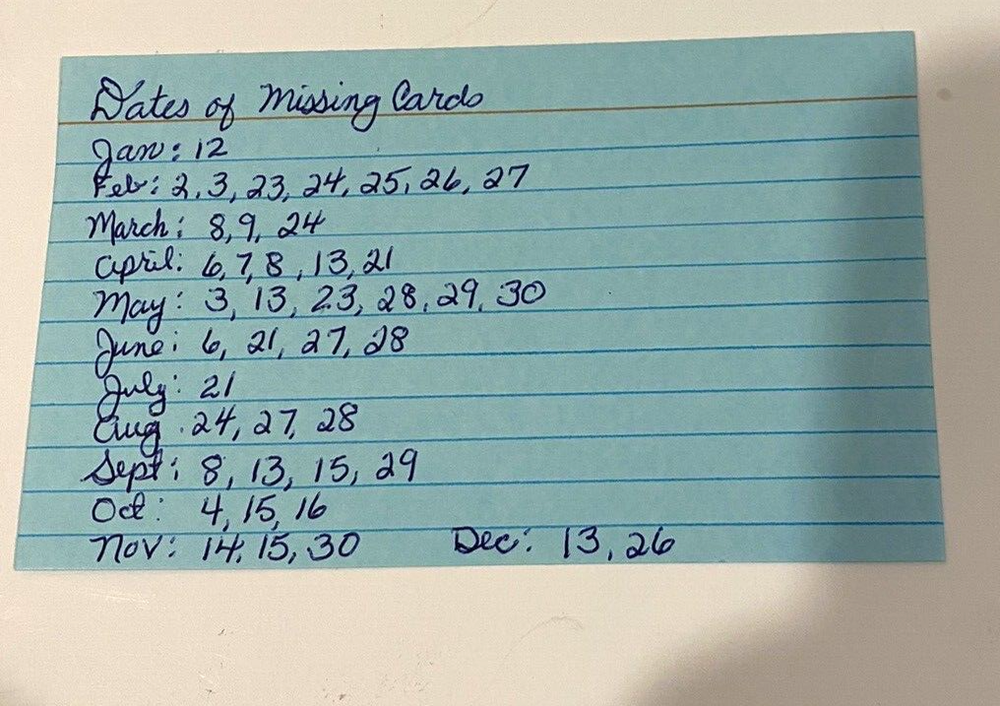 Dates of Missing Cards
Jan: 12
Feb: 2, 3, 23, 24, 25, 26, 27
March: 8, 9, 24
April: 6, 7, 8, 13, 21
May: 3, 13, 23, 28, 29, 30
June: 6, 21, 27, 28
July: 21
Aug. 24, 27, 28
Sept: 8, 13, 15, 29
Oct: 4, 15, 16
Nov: 14, 15, 30 Dec: 13, 26